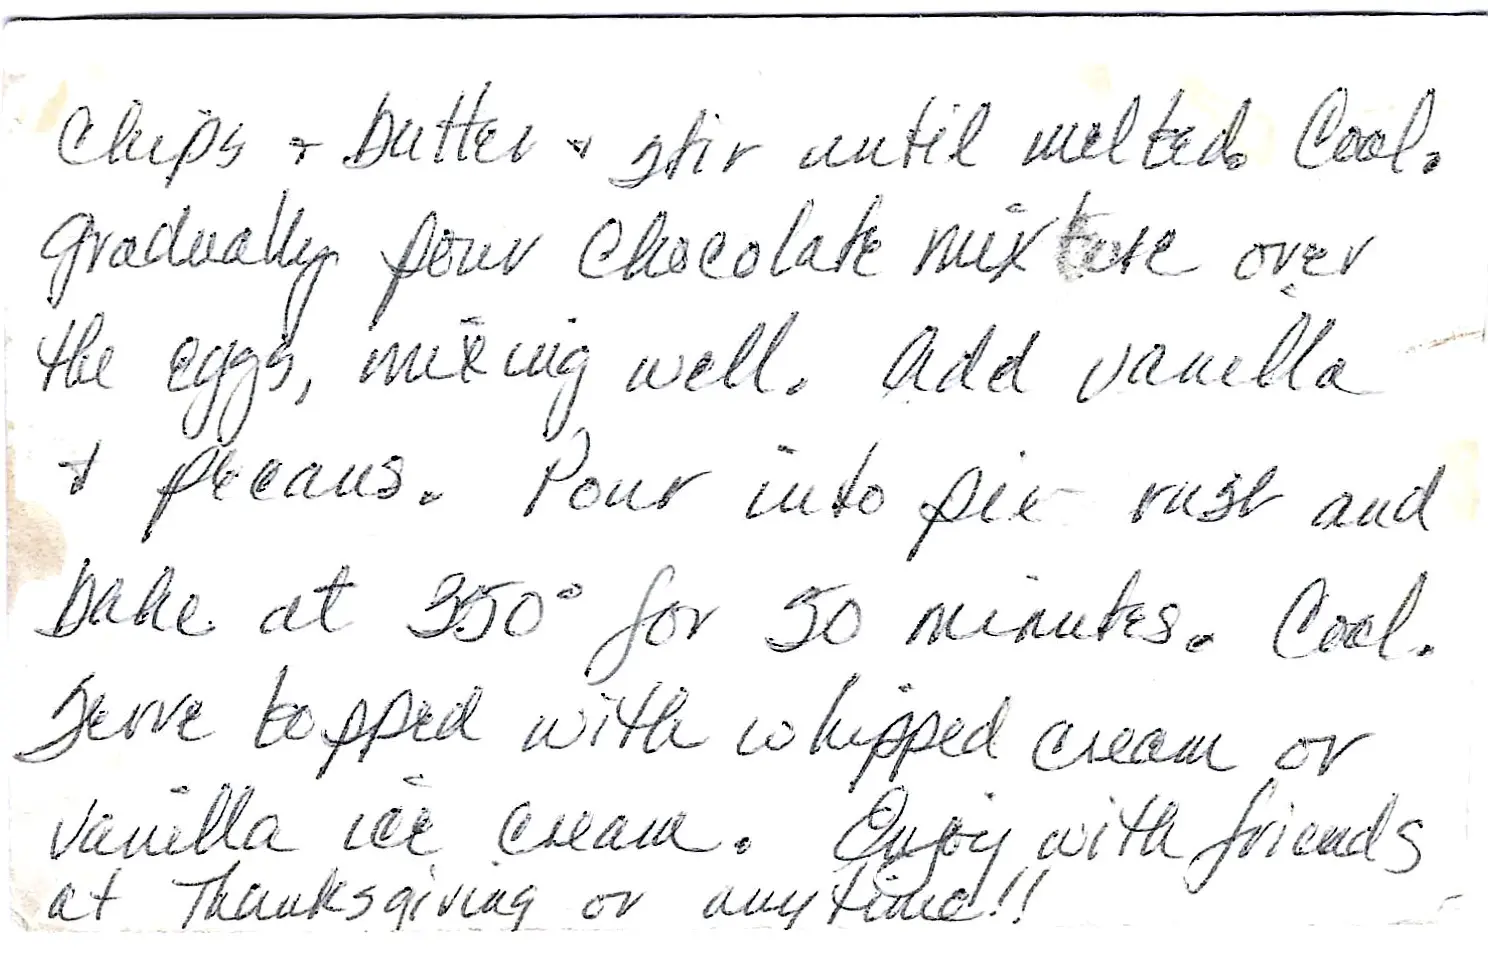 Chips + butter + stir until melted. Cool.
Gradually pour chocolate mixture over
the eggs, mixing well. Add vanilla
+ pecans. Pour into pie rust and
bake at 350° for 50 minutes. Cool.
Serve topped with whipped cream or
vanilla ice cream. Enjoy with friends
at Thanksgiving or anytime!!